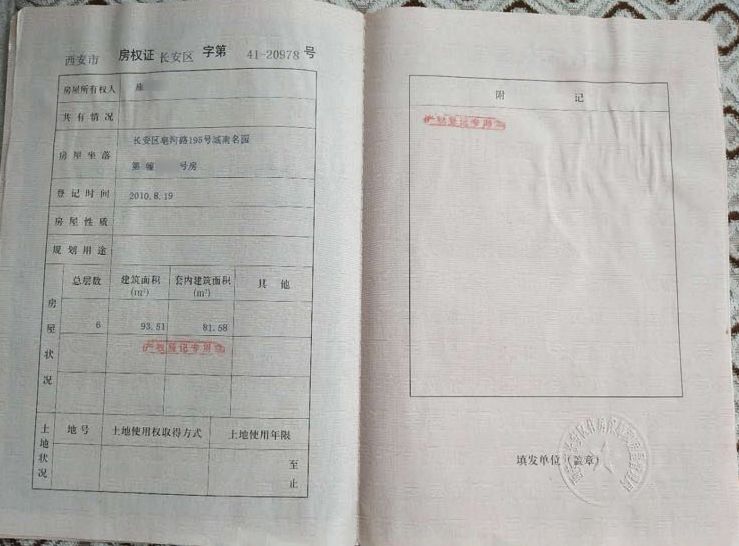 西安市 房权证 长安区 字第 41-20978 号
房屋所有权人
共有情况
房屋坐落 长安区皂河路195号城南名园
第 幢 号房
登记时间 2010.8.19
房屋性质
规划用途
房屋状况
总层数 建筑面积(m²) 套内建筑面积(m²) 其他
6 93.51 81.58
产权登记专用
土地状况
地号 土地使用权取得方式 土地使用年限
至
止
附 记
产权登记专用
填发单位(盖章)